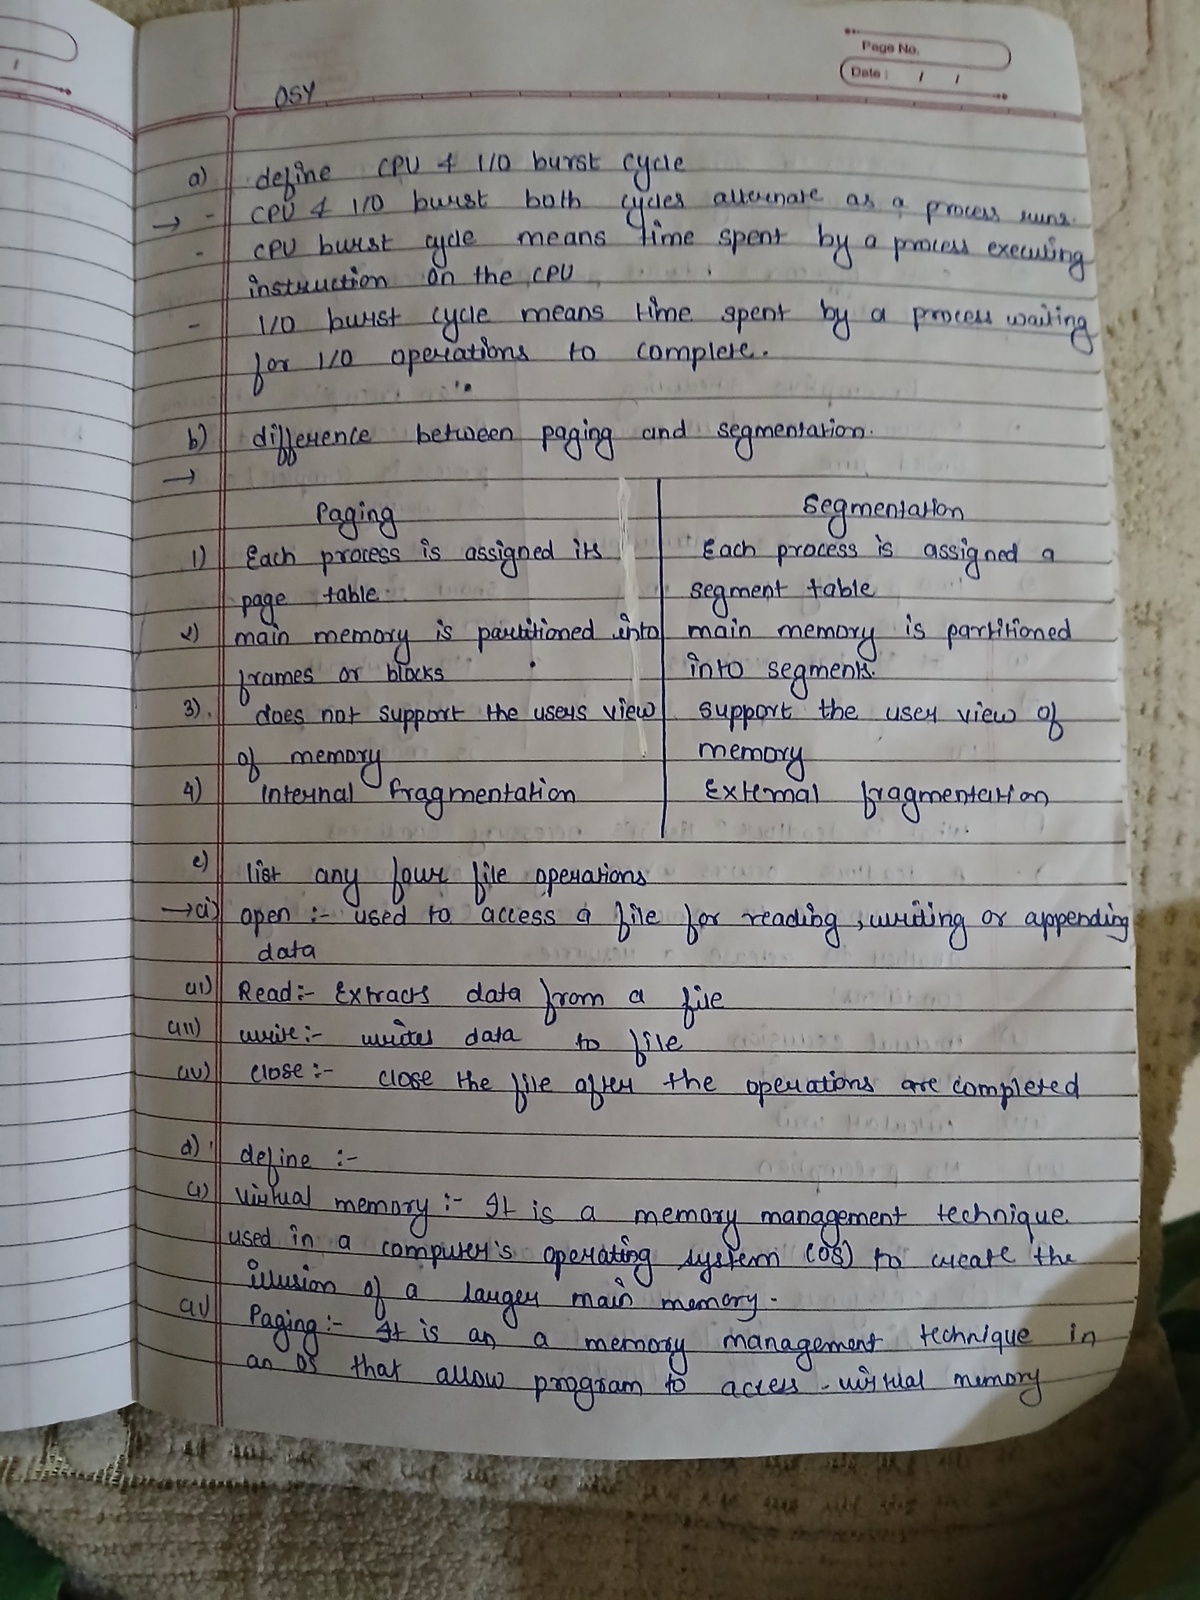 Page No.
Date : / /
OSY
a) define CPU & I/O burst cycle
→ - CPU & I/O burst both cycles alternate as a process runs.
- CPU burst cycle means time spent by a process executing
instruction on the CPU
- I/O burst cycle means time spent by a process waiting
for I/O operations to complete.
b) difference between paging and segmentation.
→
Paging Segmentation
1) Each process is assigned its Each process is assigned a
page table. segment table
2) main memory is partitioned into main memory is partitioned
frames or blocks into segments.
3). does not support the users view support the user view of
of memory memory
4) Internal fragmentation External fragmentation
c) list any four file operations
→ (i) open :- used to access a file for reading, writing or appending
data
(ii) Read :- Extracts data from a file
(iii) write :- writes data to file
(iv) close :- close the file after the operations are completed
d) define :-
(i) virtual memory :- It is a memory management technique
used in a computer's operating system (OS) to create the
illusion of a larger main memory.
(ii) Paging :- It is an a memory management technique in
an OS that allow program to access virtual memory